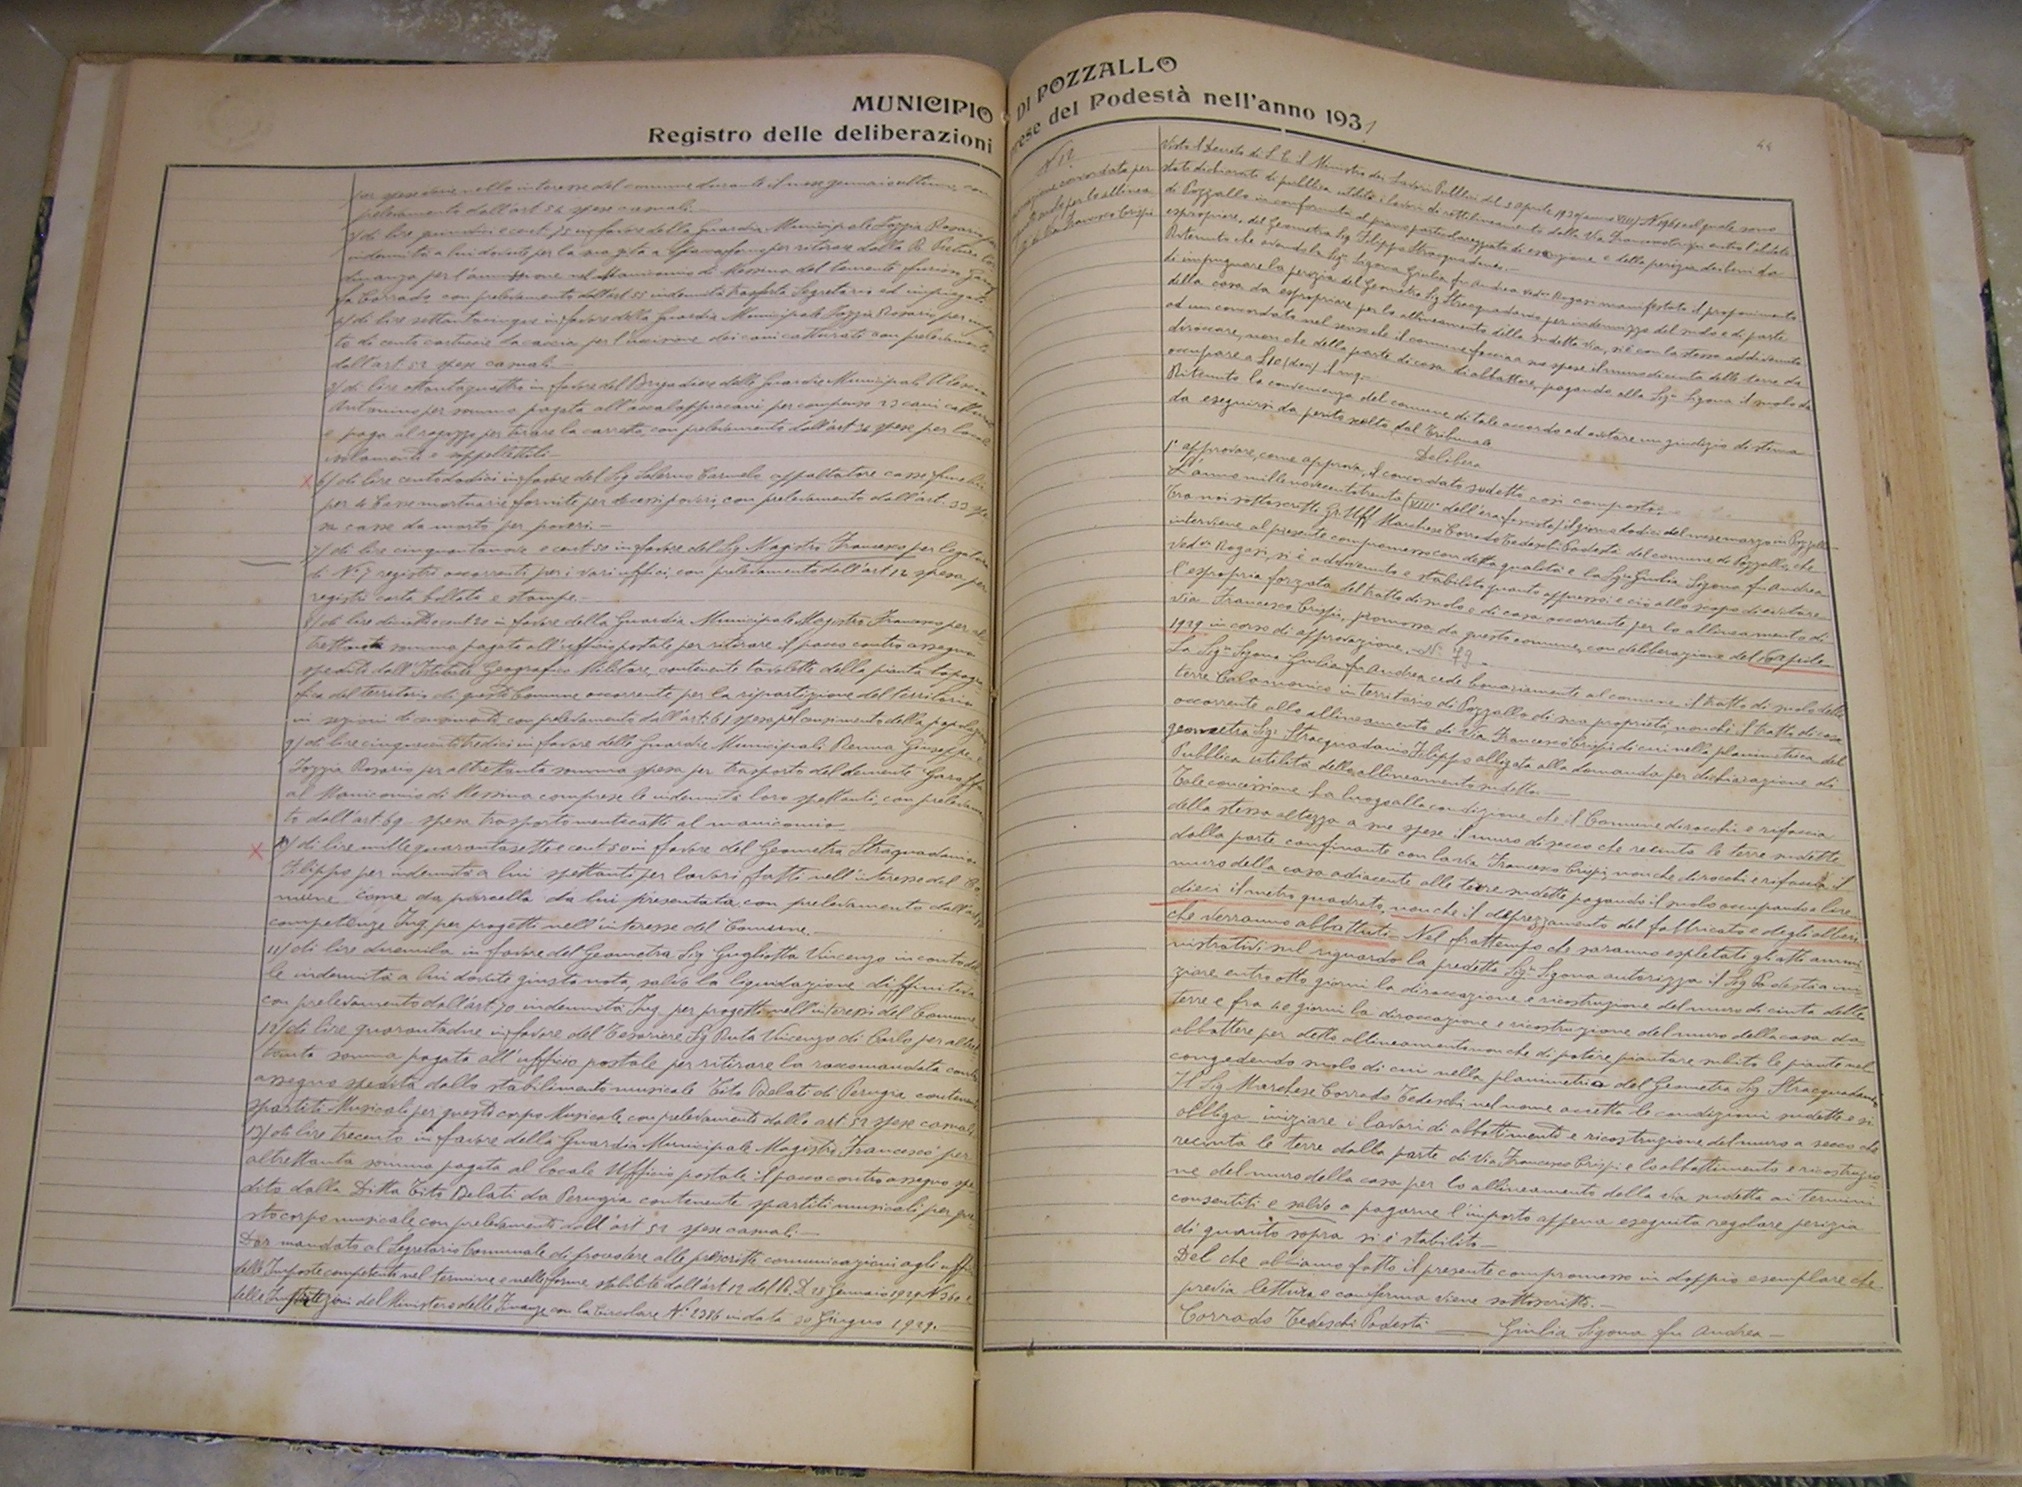 MUNICIPIO DI POZZALLO
Registro delle deliberazioni prese del Podestà nell'anno 1931
per spese fatte nello interesse del comune durante il mese gennaio ultimo, con
prelevamento dall'art 52 spese casuali.
di lire quindici e cent 75 in favore della Guardia Municipale Iozzia Rosario per
indennità a lui dovute per la sua gita a Spaccaforno per ritirare dalla R. Pretura
dinanza per l'ammissione nel Manicomio di Messina del demente
Corrado, con prelevamento dall'art 35 indennità trasferta Segretario ed impiegati
di lire settantacinque in favore della Guardia Municipale Iozzia Rosario per
to di cento cartucce da caccia per l'uccisione dei cani catturati con prelevamento
dall'art. 52 spese casuali.
di lire ottantaquattro in favore del Brigadiere delle Guardie Municipali
Antonino per somma pagata all'accalappiacani per compenso 23 cani catturati
e paga al ragazzo per tirare la carretta, con prelevamento dall'art 36 spese per locali
isolamento e suppellettili.
6/ di lire centododici in favore del Sig Salerno Carmelo appaltatore casse funebri
per 4 Casse mortuarie fornite per decessi poveri, con prelevamento dall'art. 33 spe
se casse da morto per poveri.
7/ di lire cinquantanove e cent. 50 in favore del Sig. Magistro Francesco per legatura
di N° 7 registri occorrenti per i vari uffici, con prelevamento dall'art 12 spesa per
registri carta bollata e stampe.
8/ di lire in favore della Guardia Municipale Magistro Francesco per al
trettanta somma pagata all'ufficio postale per ritirare il pacco contro assegno
spedito dall'Istituto Geografico Militare, contenente tavolette della pianta topogra
fica del territorio di questo Comune occorrente per la ripartizione del territorio
in sezioni di censimento, con prelevamento dall'art: 61 spesa pel censimento della popolazione
9/ di lire cinquecentotredici in favore delle Guardie Municipali Renna Giuseppe e
Iozzia Rosario per altrettanta somma spesa per trasporto del demente Garoffa
al Manicomio di Messina comprese le indennità loro spettanti, con prelevamen
to dall'art. 69 spesa trasporto mentecatti al manicomio
10/ di lire mille quarantasette e cent 50 in favore del Geometra Stracquadanio
Filippo per indennità a lui spettante per lavori fatti nell'interesse del Co
mune come da parcella da lui presentata, con prelevamento dall'art
competenze Ing. per progetti nell'interesse del Comune.
11/ di lire duemila in favore del Geometra Sig Gugliotta Vincenzo in conto del
le indennità a lui dovute giusta nota, salvo la liquidazione diffinitiva
con prelevamento dall'art 70 indennità Ing. per progetti nell'interesse del Comune
12/ di lire quarantadue in favore del Tesoriere Sig Ruta Vincenzo di Carlo per altret
tanta somma pagata all'ufficio postale per ritirare la raccomandata contro
assegno spedita dallo stabilimento musicale Tito Belati di Perugia contenente
spartiti Musicali per questo corpo Musicale, con prelevamento dallo art. 52 spese casuali
13/ di lire trecento in favore della Guardia Municipale Magistro Francesco per
altrettanta somma pagata al locale Ufficio postale il pacco contro assegno spe
dito dalla Ditta Tito Belati da Perugia contenente spartiti musicali per que
sto corpo musicale, con prelevamento dall'art 52 spese casuali.
Dar mandato al Segretario Comunale di provvedere alle prescritte comunicazioni agli uffici
delle Imposte competente nel termine e nelle forme stabilite dall'art 12 del R. D. 28 Gennaio 1929 N 360 e
delle Istruzioni del Ministero delle Finanze con la Circolare N° 2386 in data 30 Giugno 1929.
44
N 12
concordata per
per lo allinea
Via Francesco Crispi
Visto il Decreto di S. E. il Ministro dei Lavori Pubblici del 3 aprile 1930 (anno VIII) N 1961 col quale sono
state dichiarate di pubblica utilità i lavori di rettilineamento della Via Francesco Crispi entro l'abitato
di Pozzallo in conformità al piano particolareggiato di esecuzione e della perizia dei beni da
espropriare, del Geometra Sig. Filippo Stracquadanio.
Ritenuto che avendo la Sig.ra Sigona Giulia fu Andrea ved.va Rogasi manifestato il proponimento
di impugnare la perizia del Geometra Sig Stracquadanio per indennizzo del suolo e di parte
della casa da espropriare, per lo allineamento della sudetta via, si è con la stessa addivenuto
ad un concordato nel senso che il comune faccia a sue spese il muro di cinta delle terre da
diroccare, non che della parte di casa da abbattere, pagando alla Sig.ra Sigona il suolo da
occupare a L 10 (dieci) il mq.
Ritenuto la convenienza del comune di tale accordo ad evitare un giudizio di stima
da eseguirsi da perito scelto dal Tribunale
Delibera
1° approvare, come approva, il concordato sudetto così composto:
L'anno millenovecentotrenta (VIII° dell'era fascista) il giorno dodici del mese marzo in Pozzallo
Tra noi sottoscritti Gr. Uff Marchese Corrado Tedeschi Podestà del comune di Pozzallo, che
interviene al presente compromesso con detta qualità e la Sig.ra Giulia Sigona fu Andrea
Ved.va Rogasi, si è addivenuto e stabilito quanto appresso: e ciò allo scopo di evitare
l'espropria forzata del tratto di suolo e di casa occorrente per lo allineamento di
Via Francesco Crispi, promossa da questo comune, con deliberazione del aprile
1929 in corso di approvazione. N° 79.
La Sig.ra Sigona Giulia fu Andrea cede bonariamente al comune il tratto di suolo delle
terre Calamonico in territorio di Pozzallo di sua proprietà, nonchè il tratto di casa
occorrente allo allineamento di Via Francesco Crispi di cui nella planimetria del
geometra Sig. Stracquadanio Filippo allegata alla domanda per dichiarazione di
Pubblica utilità dello allineamento sudetto.
Tale concessione fa luogo alla condizione che il Comune dirocchi e rifaccia
della stessa altezza a sue spese il muro di secco che recinta le terre sudette
dalla parte confinante con la via Francesco Crispi, non che dirocchi e rifaccia il
muro della casa adiacente alle terre sudette pagando il suolo occupando a lire
dieci il metro quadrato, non che il deprezzamento del fabbricato e degli alberi
che verranno abbattuti. Nel frattempo che saranno espletati gli atti ammi
nistrativi sul riguardo la predetta Sig.ra Sigona autorizza il Sig Podestà a ini
ziare entro otto giorni la diroccazione e ricostruzione del muro di cinta delle
terre e fra 40 giorni la diroccazione e ricostruzione del muro della casa da
abbattere per detto allineamento non che di potere piantare subito le piante nel
concedendo suolo di cui nella planimetria del Geometra Sig. Stracquadanio
Il Sig. Marchese Corrado Tedeschi nel nome accetta le condizioni sudette e si
obbliga iniziare i lavori di abbattimento e ricostruzione del muro a secco che
recinta le terre dalla parte di Via Francesco Crispi e lo abbattimento e ricostruzio
ne del muro della casa per lo allineamento della via sudetta ai termini
consentiti e salvo a pagarne l'importo appena eseguita regolare perizia
di quanto sopra si è stabilito
Del che abbiamo fatto il presente compromesso in doppio esemplare che
previa lettura e conferma viene sottoscritto.
Corrado Tedeschi Podestà — Giulia Sigona fu Andrea